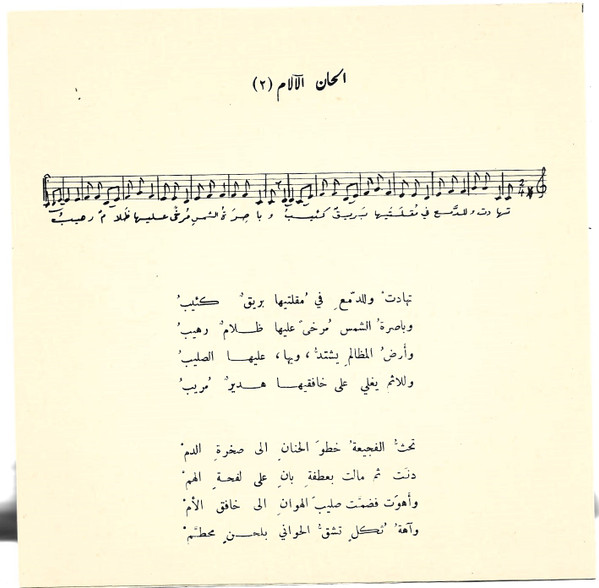 الحان الآلام (٢)
تهادت وللدَّمع في مُقلَتَيها بَريقٌ كئيبُ وباصِرَةُ الشمسِ مُرخًى عليها ظَلامٌ رهيبُ
تهادتْ وللدّمعِ في مُقلتيها بريقٌ كئيبُ
وباصرةُ الشمس مُرخىً عليها ظلامٌ رهيبُ
وأرضُ المظالمِ يشتدُّ، ويها، عليها الصليبُ
وللاثمِ يغلي على خافقيها هديرٌ مُريبُ
تحثُّ الفجيعةُ خطوَ الحنانِ الى صخرةِ الدمْ
دنَت ثم مالت بعطفةِ بانٍ على لفحةِ الهمْ
وأهوَت فضمَّت صليبَ الهوانِ الى خافقِ الأمْ
وآهةُ ثُكلٍ تشقُّ الحواني بلحنٍ محطَّمْ